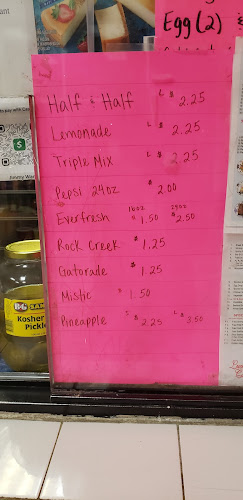 Egg (2) $
Half & Half L $ 2.25
Lemonade L $ 2.25
Triple Mix L $ 2.25
Pepsi 24oz $ 2.00
16oz 24oz
Everfresh $ 1.50 $2.50
Rock Creek $ 1.25
Gatorade $ 1.25
Mistic $ 1.50
Pineapple S $ 2.25 L $ 3.50
Jimmy
Kosher
Pickl